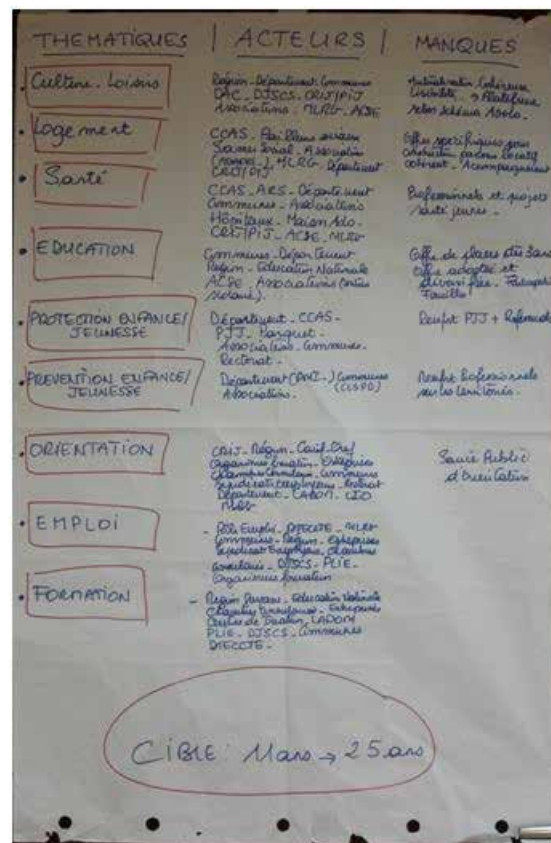 THEMATIQUES | ACTEURS | MANQUES
Culture - Loisirs
Région - Département Communes
DAC - DJSCS - CRIJ/PIJ
Associations - MLRG - ACSE
Logement
CCAS - Bailleurs sociaux
Bailleurs Social - Association
MLRG - Département
CRIJ/PIJ
Offres spécifiques pour
cohérent - Accompagnement
Santé
CCAS - ARS - Département
Communes - Associations
Hôpitaux - Maison Ado -
CRIJ/PIJ - ACSE - MLRG
Professionnels et projets
santé jeunes -
EDUCATION
Communes - Département
Région - Education Nationale
ACSE - Associations
Offre de places dès 3 ans
Offre adaptée et
diversifiée -
Famille
PROTECTION ENFANCE/
JEUNESSE
Département - CCAS -
PJJ - Parquet -
Associations - Communes -
Rectorat -
Renfort PJJ +
PREVENTION ENFANCE/
JEUNESSE
Département (PMI -) Communes
(CLSPD)
Associations -
Renfort Professionnels
sur les territoires -
ORIENTATION
CRIJ - Région - Carif Oref
Organismes formation - Entreprises
Communes
Département - LADOM - CIO
MLRG
Service Public
d'Orientation
EMPLOI
- Pôle Emploi - DIECCTE - MLRG
Communes - Région - Entreprises
Chambres
consulaires - DJSCS - PLIE -
Organismes formation
FORMATION
- Région - Education Nationale
Chambres consulaires - Entreprises
LADOM
PLIE - DJSCS - Communes
DIECCTE -
CIBLE : 11 ans → 25 ans